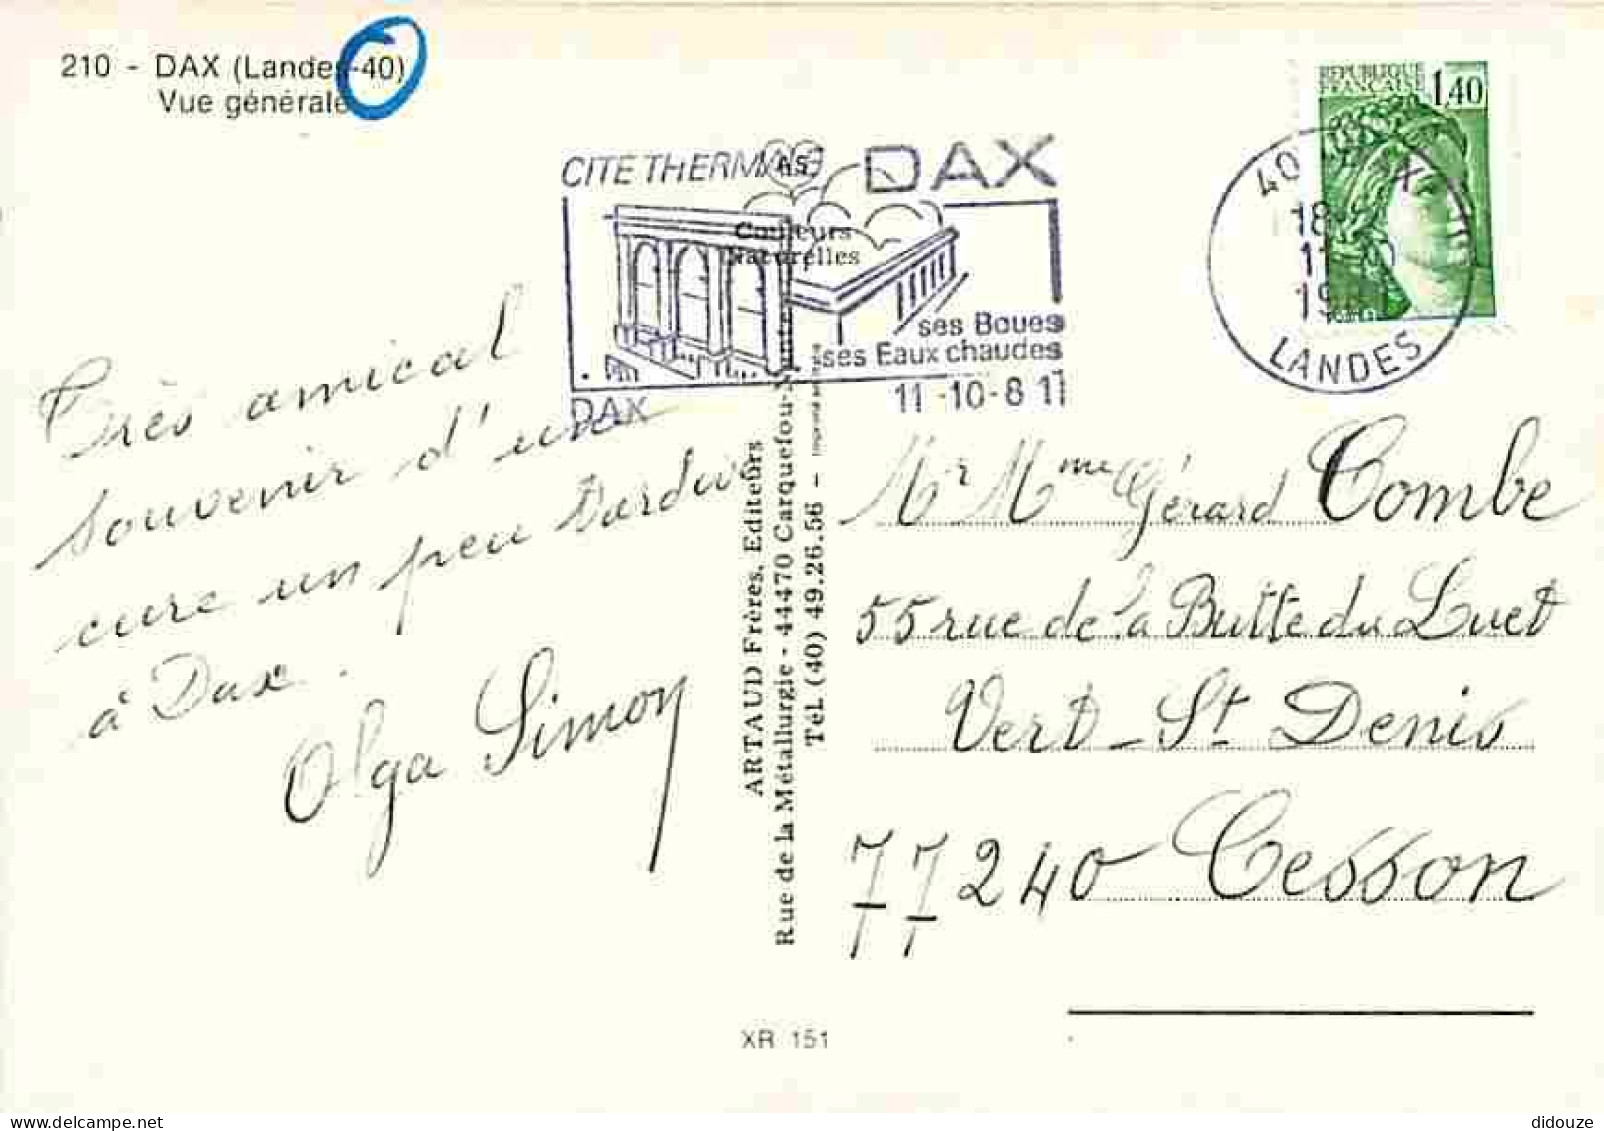 210 - DAX (Landes-40)
Vue générale
REPUBLIQUE
FRANÇAISE 1,40
CITE THERMALE DAX
Couleurs
Naturelles
ses Boues
ses Eaux chaudes
DAX 11-10-81
40 DAX
18
LANDES
Très amical
souvenir d'une
cure un peu tardive
à Dax.
Olga Simon
ARTAUD Frères, Editeurs
Rue de la Métallurgie - 44470 Carquefou-Nantes
Tél. (40) 49.26.56 -
Mr Mme Gérard Combe
55 rue de la Butte du Luet
Vert-St Denis
77240 Cesson
XR 151
didouze